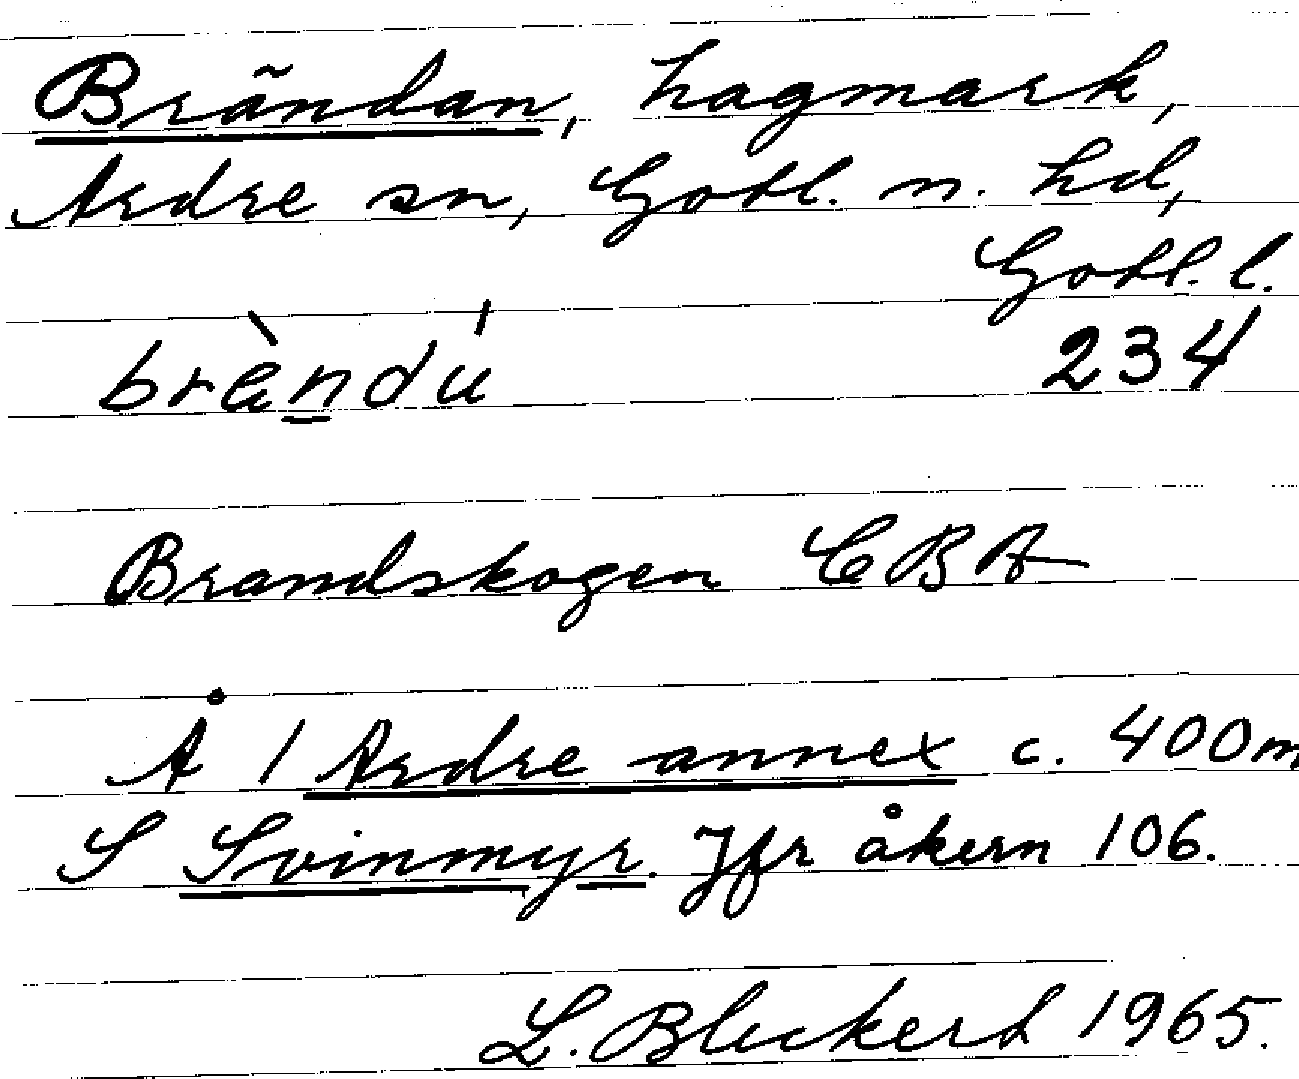 Brändan, hagmark,
Ardre sn, Gotl. n. hd,
Gotl. l.
brǜndú 234
Brandskogen CBA
Å / Ardre annex c. 400m
S Svinmyr. Jfr åkern 106.
L. Bleckert 1965.